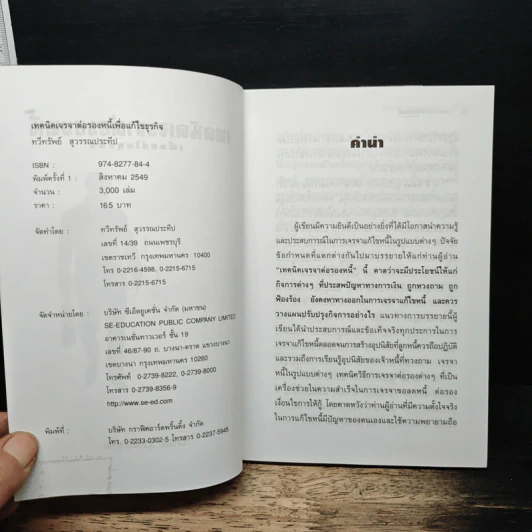 เทคนิคเจรจาต่อรองหนี้เพื่อแก้ไขธุรกิจ
ทวีทรัพย์ สุวรรณประทีป
ISBN : 974-8277-84-4
พิมพ์ครั้งที่ 1 : สิงหาคม 2549
จำนวน : 3,000 เล่ม
ราคา : 165 บาท
จัดทำโดย : ทวีทรัพย์ สุวรรณประทีป
เลขที่ 14/39 ถนนเพชรบุรี
เขตราชเทวี กรุงเทพมหานคร 10400
โทร 0-2216-4598, 0-2215-6715
โทรสาร 0-2215-6715
จัดจำหน่ายโดย : บริษัท ซีเอ็ดยูเคชั่น จำกัด (มหาชน)
SE-EDUCATION PUBLIC COMPANY LIMITED
อาคารเนชั่นทาวเวอร์ ชั้น 19
เลขที่ 46/87-90 ถ. บางนา-ตราด แขวงบางนา
เขตบางนา กรุงเทพมหานคร 10260
โทรศัพท์ 0-2739-8222, 0-2739-8000
โทรสาร 0-2739-8356-9
http://www.se-ed.com
พิมพ์ที่ : บริษัท กราฟิคอาร์ตพริ้นติ้ง จำกัด
โทร. 0-2233-0302-5 โทรสาร 0-2237-5945
คำนำ
ผู้เขียนมีความยินดีเป็นอย่างยิ่งที่ได้มีโอกาสนำความรู้
และประสบการณ์ในการเจรจาแก้ไขหนี้ในรูปแบบต่างๆ ปัจจัย
ข้อกำหนดที่แตกต่างกันไปมาบรรยายให้แก่ท่านผู้อ่าน
"เทคนิคเจรจาต่อรองหนี้" นี้ คาดว่าจะมีประโยชน์ให้แก่
กิจการต่างๆ ที่ประสพปัญหาทางการเงิน ถูกทวงถาม ถูก
ฟ้องร้อง ยังคงหาทางออกในการเจรจาแก้ไขหนี้ และควร
วางแผนปรับปรุงกิจการอย่างไร แนวทางการบรรยายนี้ผู้
เขียนได้นำประสบการณ์และข้อเท็จจริงทุกประการในการ
เจรจาแก้ไขหนี้ตลอดจนการสร้างอุปนิสัยที่ลูกหนี้ควรถือปฏิบัติ
และรวมถึงการเรียนรู้อุปนิสัยของเจ้าหนี้ที่ทวงถาม เจรจา
หนี้ในรูปแบบต่างๆ เทคนิควิธีการเจรจาต่อรองต่างๆ ที่เป็น
เครื่องช่วยในความสำเร็จในการเจรจาขอลดหนี้ ต่อรอง
เงื่อนไขการให้กู้ โดยคาดหวังว่าท่านผู้อ่านที่มีความตั้งใจจริง
ในการแก้ไขหนี้มีปัญหาของตนเองและใช้ความพยายามถือ